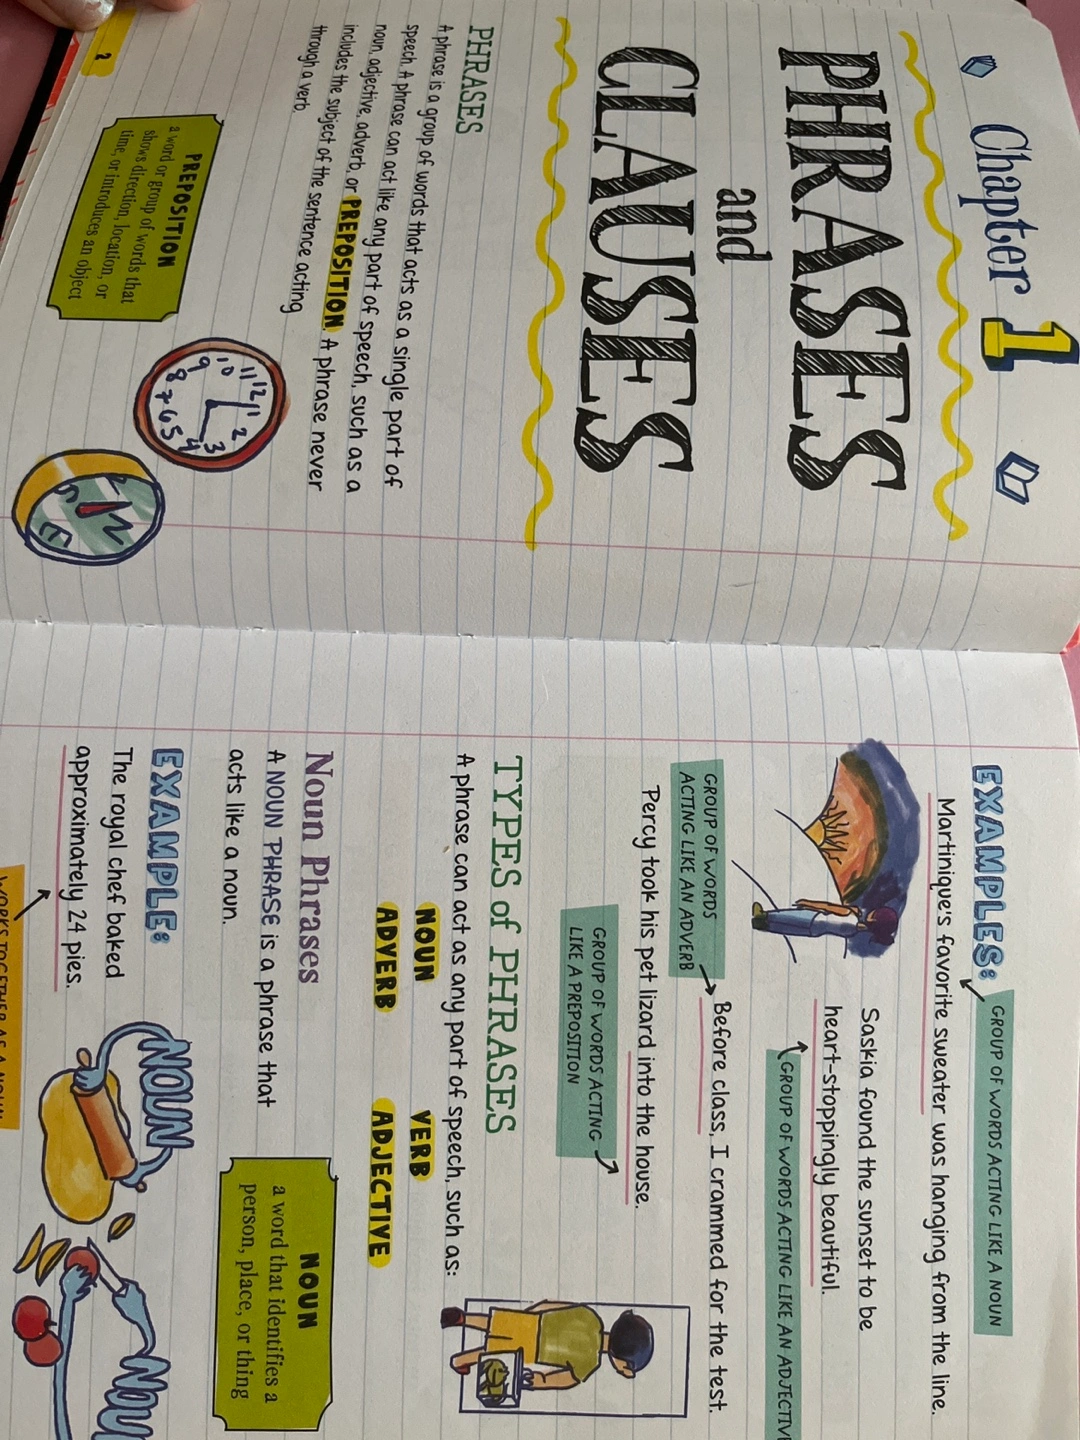 Chapter 1
PHRASES
and
CLAUSES
PHRASES
A phrase is a group of words that acts as a single part of
speech. A phrase can act like any part of speech, such as a
noun, adjective, adverb, or PREPOSITION. A phrase never
includes the subject of the sentence acting
through a verb.
PREPOSITION
a word or group of words that
shows direction, location, or
time, or introduces an object
10 11 12 1 2 3 4 5 6 7 8 9
2
EXAMPLES:
GROUP OF WORDS ACTING LIKE A NOUN
Martinique's favorite sweater was hanging from the line.
Saskia found the sunset to be
heart-stoppingly beautiful.
GROUP OF WORDS ACTING LIKE AN ADJECTIVE
GROUP OF WORDS
ACTING LIKE AN ADVERB
Before class, I crammed for the test.
Percy took his pet lizard into the house.
GROUP OF WORDS ACTING
LIKE A PREPOSITION
TYPES of PHRASES
A phrase can act as any part of speech, such as:
NOUN VERB
ADVERB ADJECTIVE
Noun Phrases
A NOUN PHRASE is a phrase that
acts like a noun.
NOUN
a word that identifies a
person, place, or thing
EXAMPLE:
The royal chef baked
approximately 24 pies.
NOUN
NOU
WORKS TOGETHER AS A NOUN